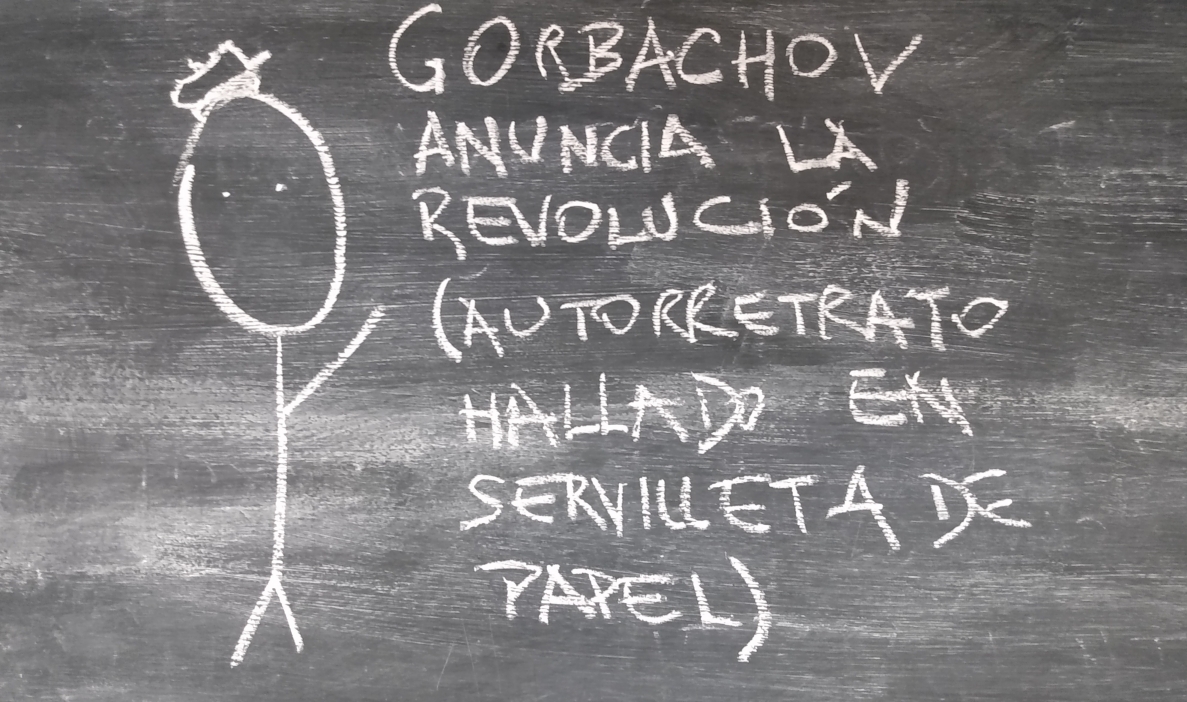 GORBACHOV
ANUNCIA LA
REVOLUCIÓN
(AUTORRETRATO
HALLADO EN
SERVILLETA DE
PAPEL)